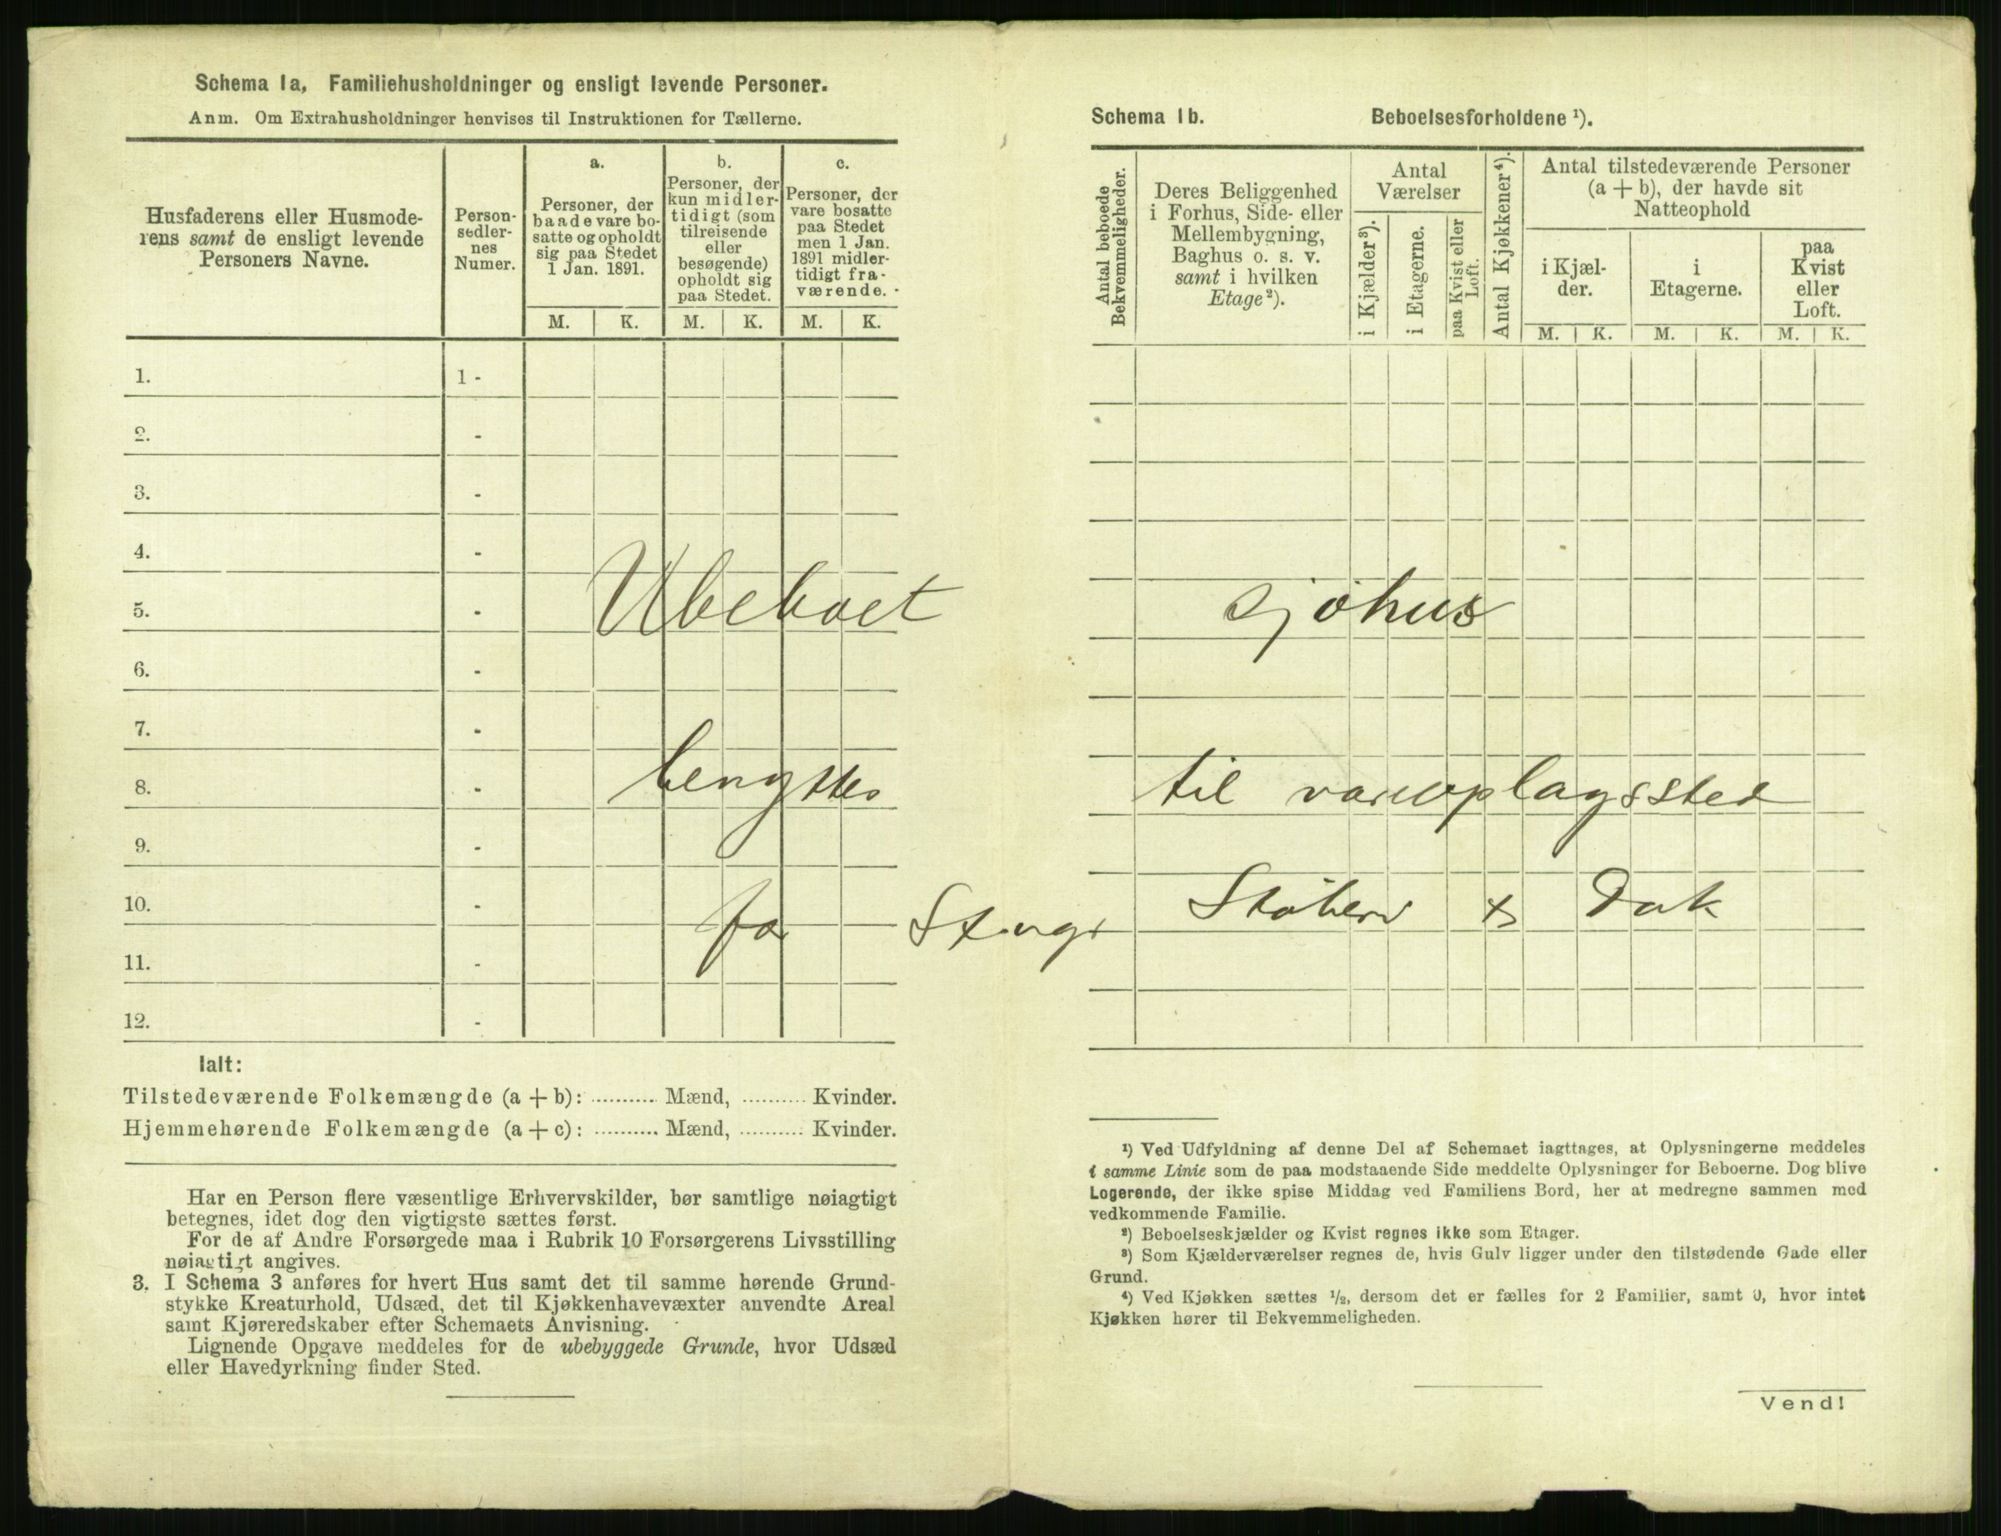 Schema 1a, Familiehusholdninger og ensligt levende Personer.
Anm. Om Extrahusholdninger henvises til Instruktionen for Tællerne.
Husfaderens eller Husmode-
rens samt de ensligt levende
Personers Navne.
Person-
sedler-
nes
Numer.
a.
Personer, der
baade vare bo-
satte og opholdt
sig paa Stedet
1 Jan. 1891.
b.
Personer, der
kun midler-
tidigt (som
tilreisende
eller
besøgende)
opholdt sig
paa Stedet.
c.
Personer, der
vare bosatte
paa Stedet
men 1 Jan.
1891 midler-
tidigt fra-
værende.
M. K. M. K. M. K.
1. 1 -
2. -
3. -
4. -
5. -
6. -
7. -
8. -
9. -
10. -
11. -
12. -
Ubeboet
til
Ialt:
Tilstedeværende Folkemængde (a + b): .......... Mænd, .......... Kvinder.
Hjemmehørende Folkemængde (a + c): .......... Mænd, .......... Kvinder.
Har en Person flere væsentlige Erhvervskilder, bør samtlige nøiagtigt
betegnes, idet dog den vigtigste sættes først.
For de af Andre Forsørgede maa i Rubrik 10 Forsørgerens Livsstilling
nøiagtigt angives.
3. I Schema 3 anføres for hvert Hus samt det til samme hørende Grund-
stykke Kreaturhold, Udsæd, det til Kjøkkenhavevæxter anvendte Areal
samt Kjøreredskaber efter Schemaets Anvisning.
Lignende Opgave meddeles for de ubebyggede Grunde, hvor Udsæd
eller Havedyrkning finder Sted.
Schema 1b. Beboelsesforholdene ¹).
Antal beboede
Bekvemmeligheder.
Deres Beliggenhed
i Forhus, Side- eller
Mellembygning,
Baghus o. s. v.
samt i hvilken
Etage ²).
Antal
Værelser
i Kjælder ³).
i Etagerne.
paa Kvist eller
Loft.
Antal Kjøkkener ⁴).
Antal tilstedeværende Personer
(a + b), der havde sit
Natteophold
i Kjæl-
der.
i
Etagerne.
paa
Kvist
eller
Loft.
M. K. M. K. M. K.
sjøhus
vareoplagssted
¹) Ved Udfyldning af denne Del af Schemaet iagttages, at Oplysningerne meddeles
i samme Linie som de paa modstaaende Side meddelte Oplysninger for Beboerne. Dog blive
Logerende, der ikke spise Middag ved Familiens Bord, her at medregne sammen med
vedkommende Familie.
²) Beboelseskjælder og Kvist regnes ikke som Etager.
³) Som Kjælderværelser regnes de, hvis Gulv ligger under den tilstødende Gade eller
Grund.
⁴) Ved Kjøkken sættes ½, dersom det er fælles for 2 Familier, samt 0, hvor intet
Kjøkken hører til Bekvemmeligheden.
Vend!